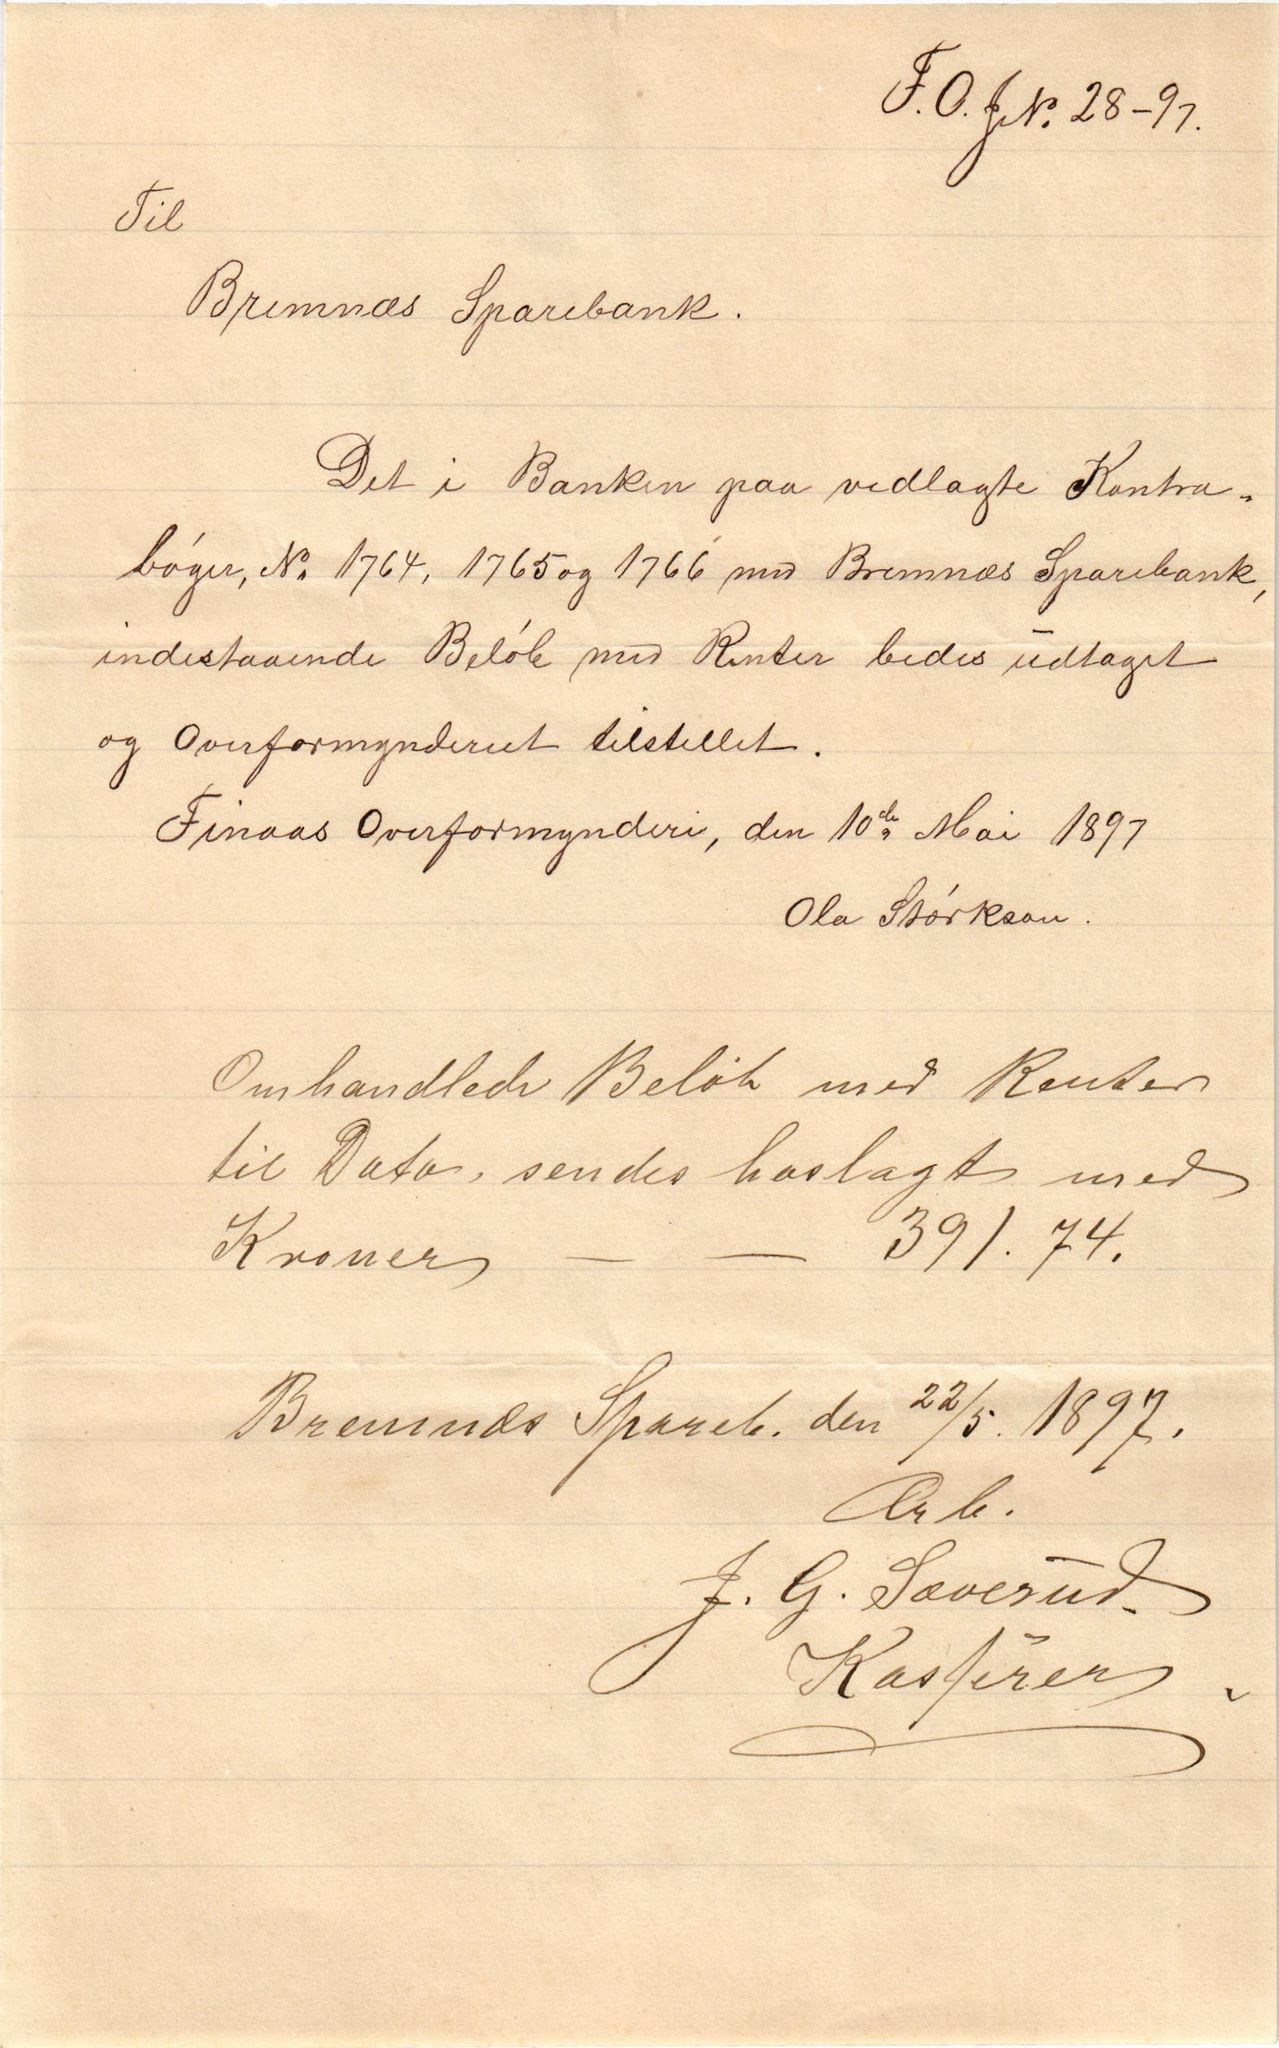 F. O. J. No. 28-97.
Til
Bremnæs Sparebank.
Det i Banken paa vedlagte Kontra-
bøger, No. 1764, 1765 og 1766 med Bremnæs Sparebank,
indestaaende Beløb med Renter bedes udtaget
og Overformynderiet tilstillet.
Finaas Overformynderi, den 10de Mai 1897
Ola Størkson.
Omhandlede Beløb med Renter
til Dato, sendes hoslagt med
Kroner — — 391. 74.
Bremnæs Spareb. den 22/5. 1897.
Ærb.
J. G. Sæverud.
Kasserer